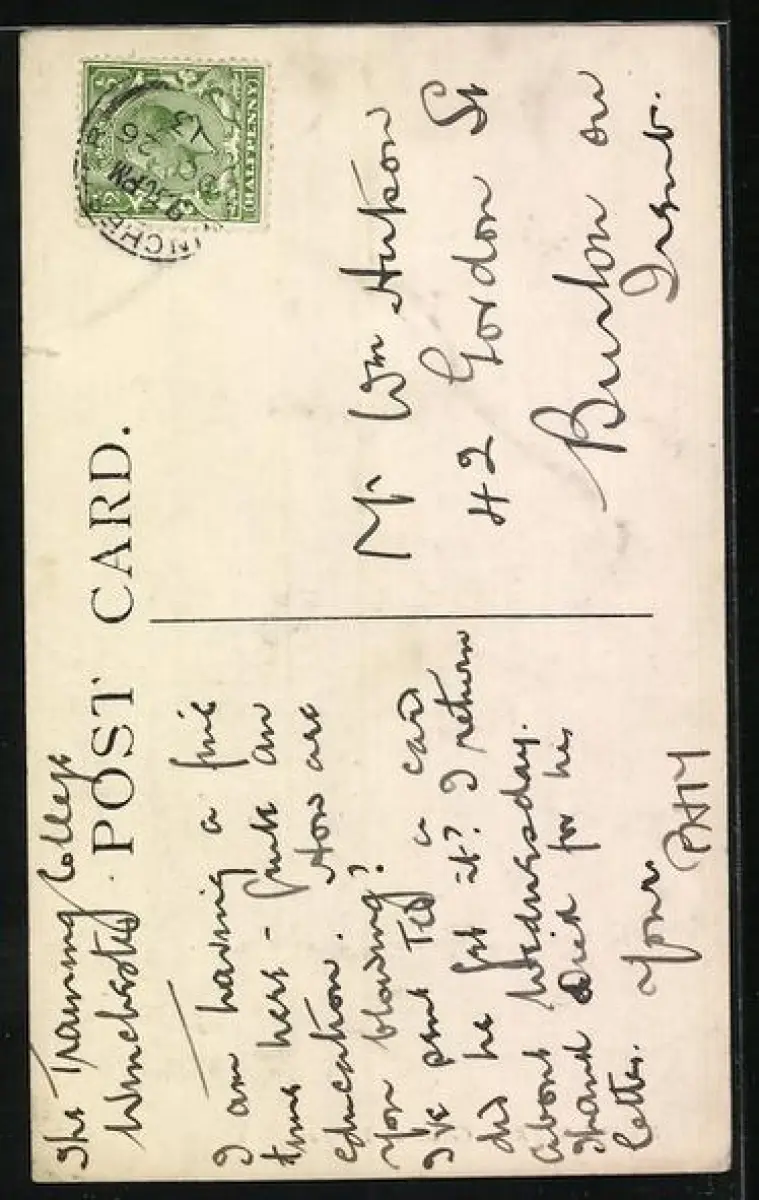 The Training College
Winchester
POST CARD.
I am having a fine
time here - quite an
education. How are
you blowing?
I've sent Ted a card
did he get it? I return
about Wednesday.
Thank Dick for his
letter.
Yours
Mr Wm Hutson
42 Gordon St
Burton on
Trent.
HALFPENNY
INCHE
9.30 PM
26
13